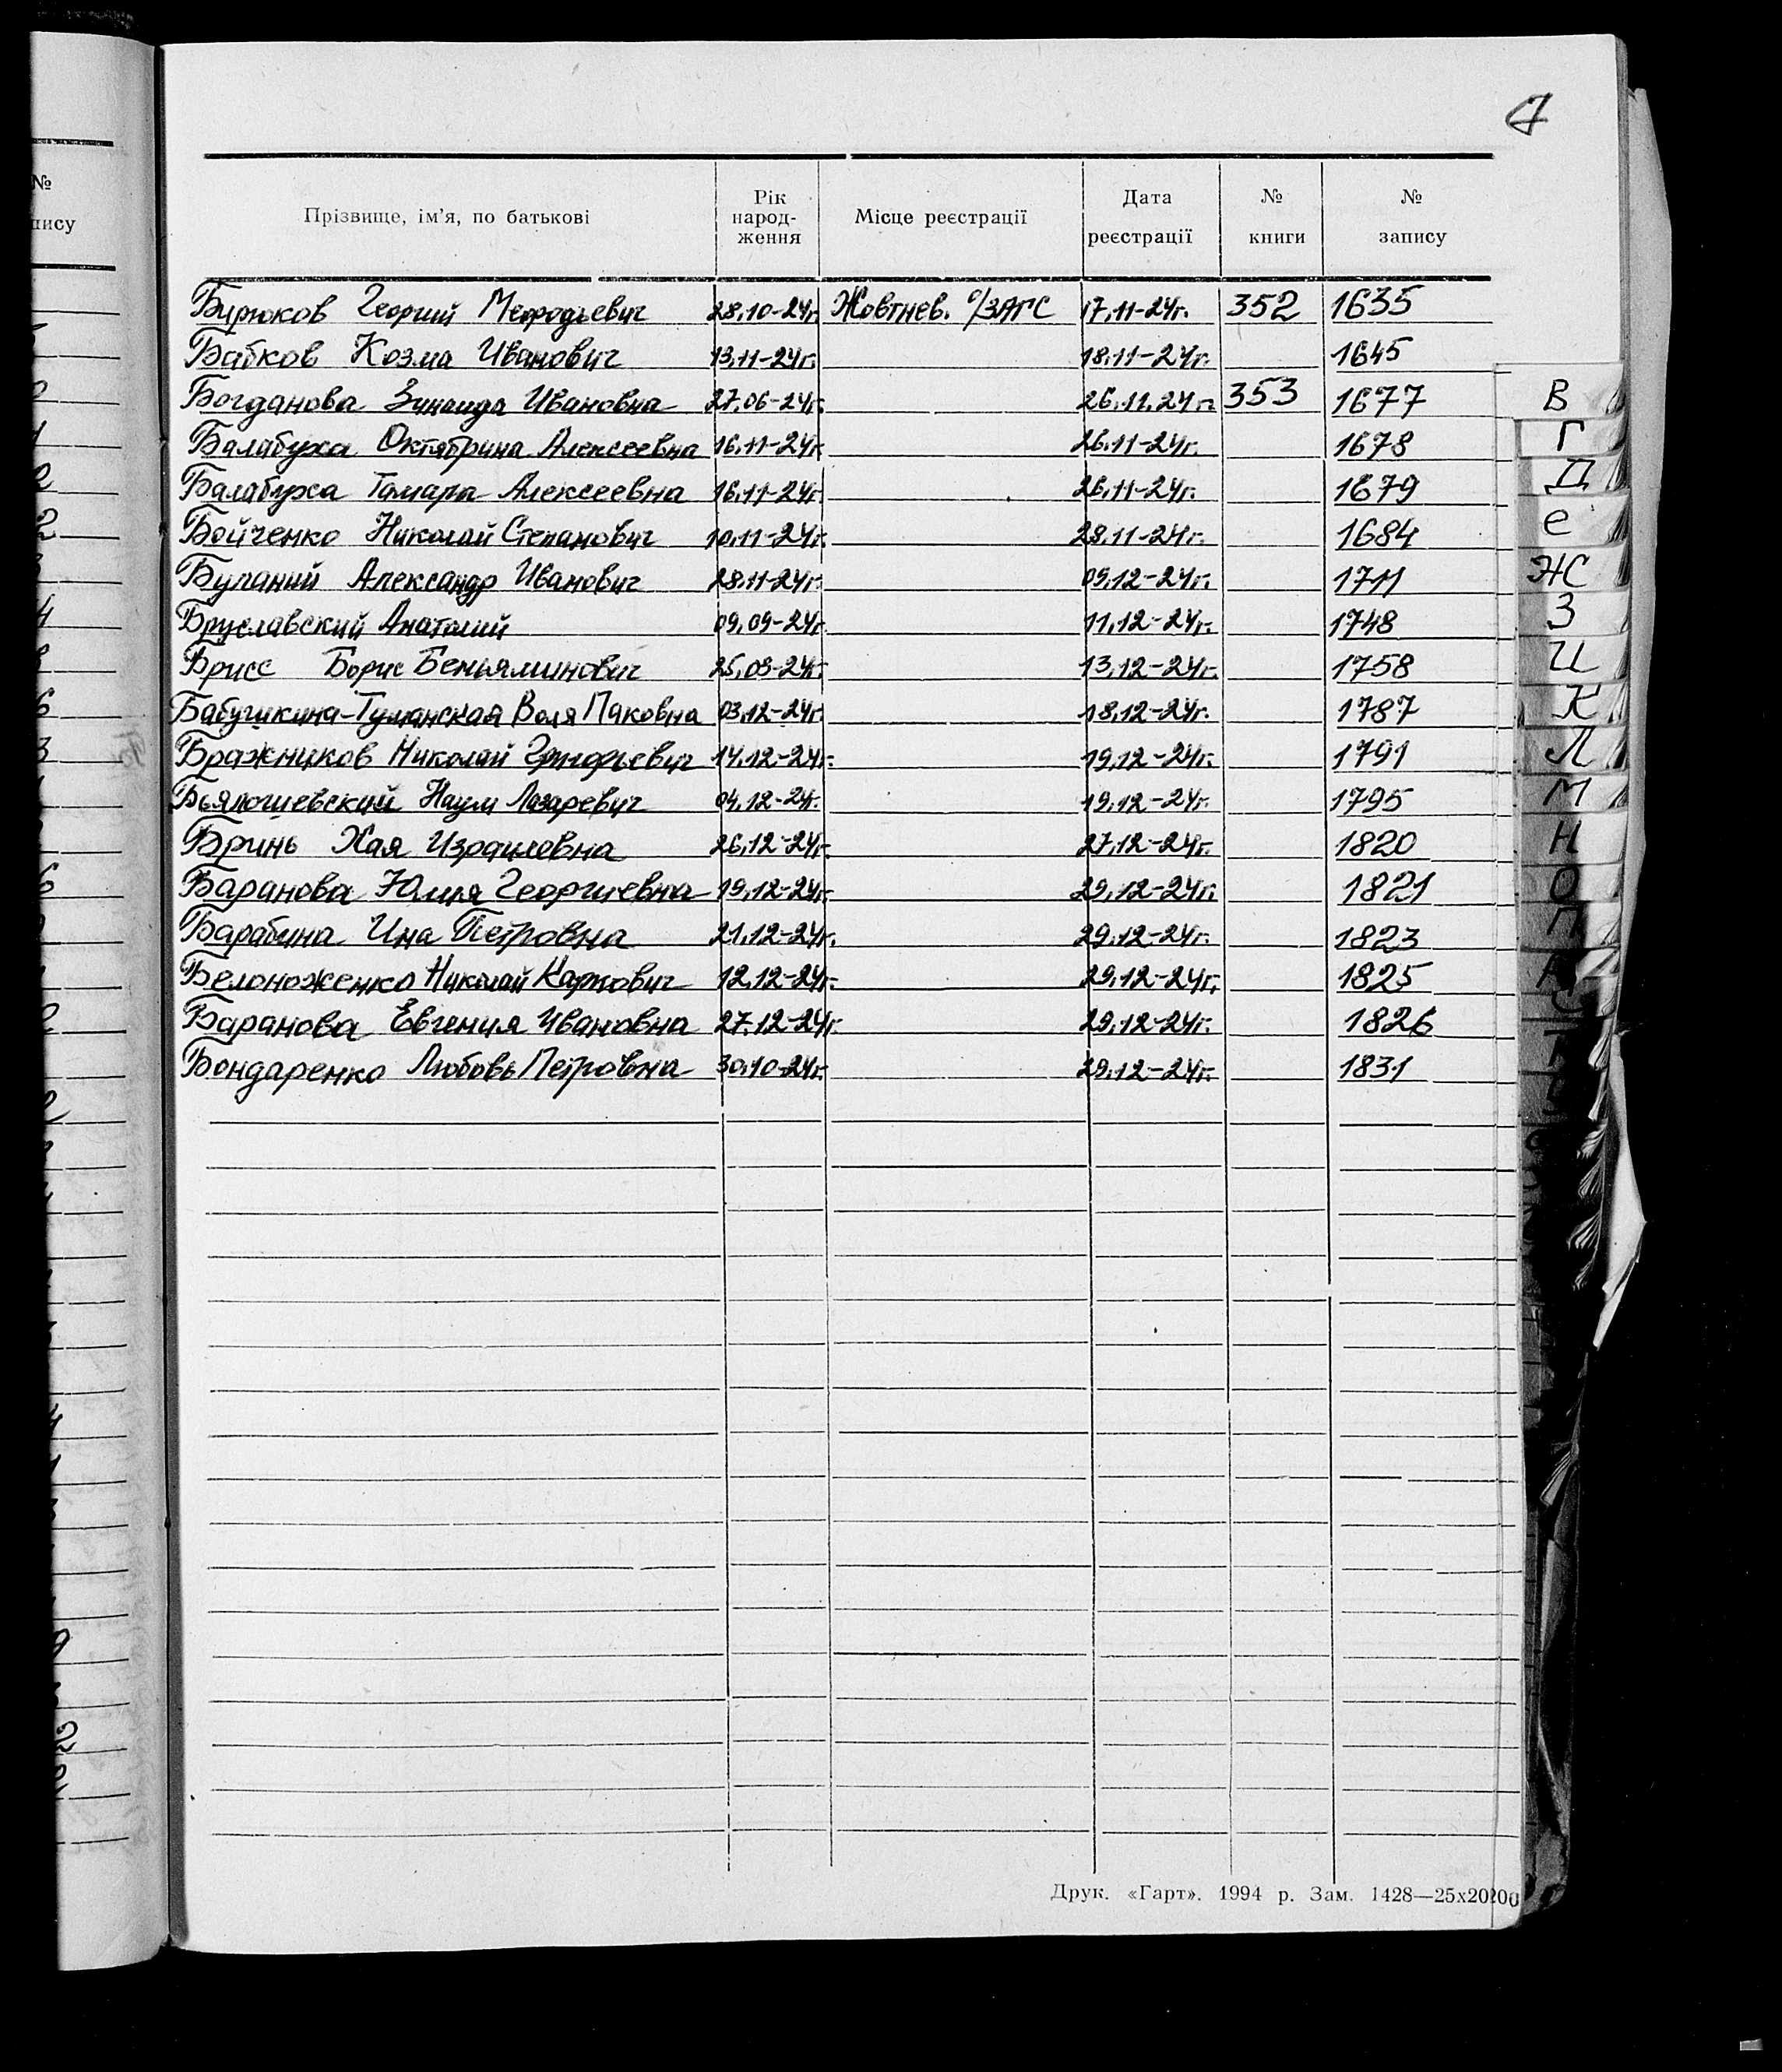 7
Прізвище, ім’я, по батькові Рік народ-ження Місце реєстрації Дата реєстрації № книги № запису
Бирюков Георгий Мефодьевич 28.10-24г. Жовтнев. о/ЗАГС 17.11-24г. 352 1635
Бабков Козма Иванович 13.11-24г. 18.11-24г. 1645
Богданова Зинаида Ивановна 27.06-24г. 26.11.24г. 353 1677
Балабуха Октябрина Алексеевна 16.11-24г. 26.11-24г. 1678
Балабуха Тамара Алексеевна 16.11-24г. 26.11-24г. 1679
Бойченко Николай Степанович 10.11-24г. 28.11-24г. 1684
Буланий Александр Иванович 28.11-24г. 09.12-24г. 1711
Бруславский Анатолий 09.09-24г. 11.12-24г. 1748
Брисс Борис Беньяминович 25.09-24г. 13.12-24г. 1758
Бабушкина-Туманская Воля Паковна 03.12-24г. 18.12-24г. 1787
Бражников Николай Григорьевич 14.12-24г. 19.12-24г. 1791
Бьялошевский Наум Лазаревич 04.12-24г. 19.12-24г. 1795
Бринь Хая Израилевна 26.12-24г. 27.12-24г. 1820
Баранова Юлия Георгиевна 19.12-24г. 29.12-24г. 1821
Барабина Ина Петровна 21.12-24г. 29.12-24г. 1823
Белоноженко Николай Карпович 12.12-24г. 29.12-24г. 1825
Баранова Евгения Ивановна 27.12-24г. 29.12-24г. 1826
Бондаренко Любовь Петровна 30.10-24г. 29.12-24г. 1831
Друк. «Гарт». 1994 р. Зам. 1428—25х20200
№
пису
В
Г
Д
Е
Ж
З
И
К
Л
М
Н
О
П